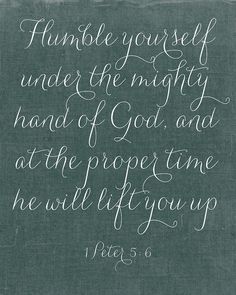 Humble yourself
under the mighty
hand of God, and
at the proper time
he will lift you up
1 Peter 5:6